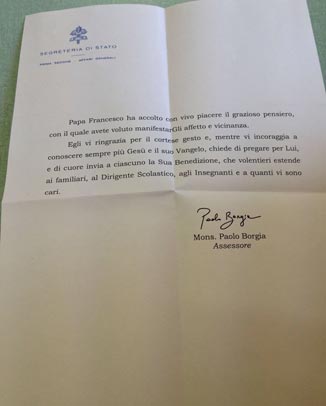 SEGRETERIA DI STATO
PRIMA SEZIONE - AFFARI GENERALI
Papa Francesco ha accolto con vivo piacere il grazioso pensiero,
con il quale avete voluto manifestarGli affetto e vicinanza.
Egli vi ringrazia per il cortese gesto e, mentre vi incoraggia a
conoscere sempre più Gesù e il suo Vangelo, chiede di pregare per Lui,
e di cuore invia a ciascuno la Sua Benedizione, che volentieri estende
ai familiari, al Dirigente Scolastico, agli Insegnanti e a quanti vi sono
cari.
Paolo Borgia
Mons. Paolo Borgia
Assessore